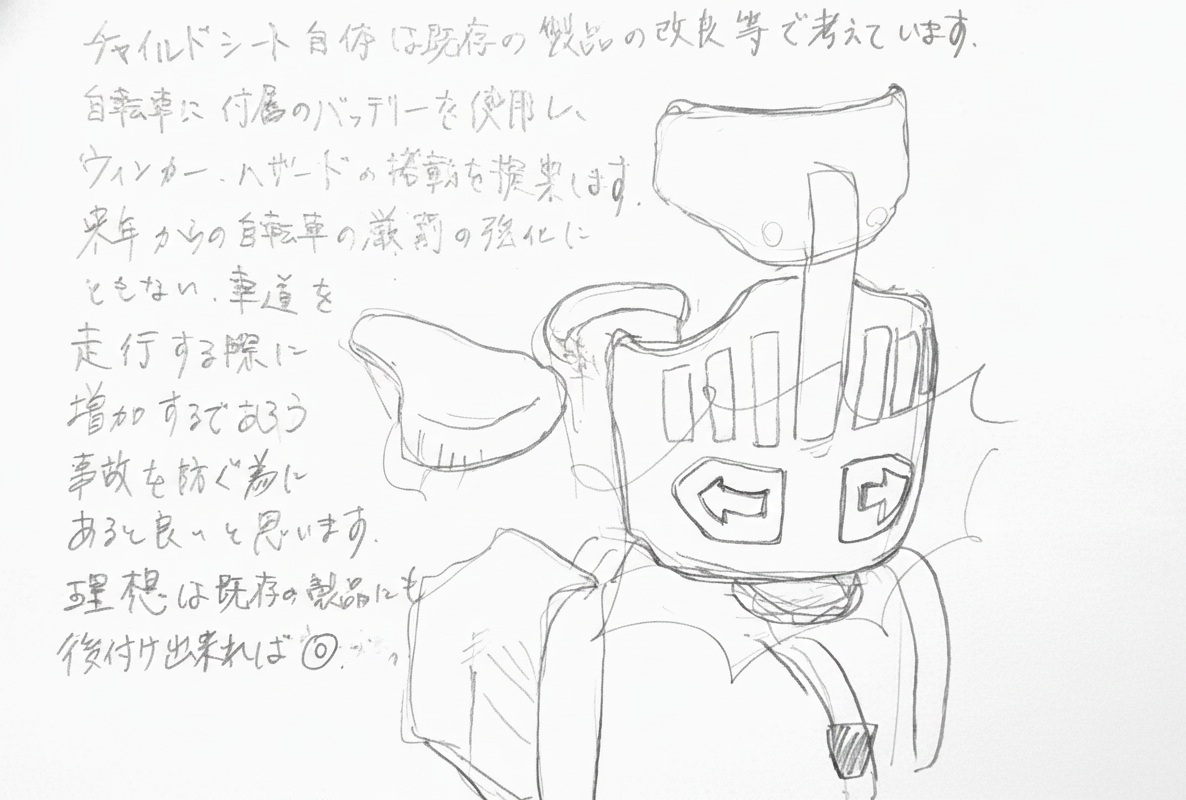 チャイルドシート自体は既存の製品の改良等で考えています。
自転車に付属のバッテリーを使用し、
ウィンカー、ハザードの搭載を提案します。
来年からの自転車の厳罰の強化に
ともない、車道を
走行する際に
増加するであろう
事故を防ぐ為に
あると良いと思います。
理想は既存の製品にも
後付け出来れば◎。